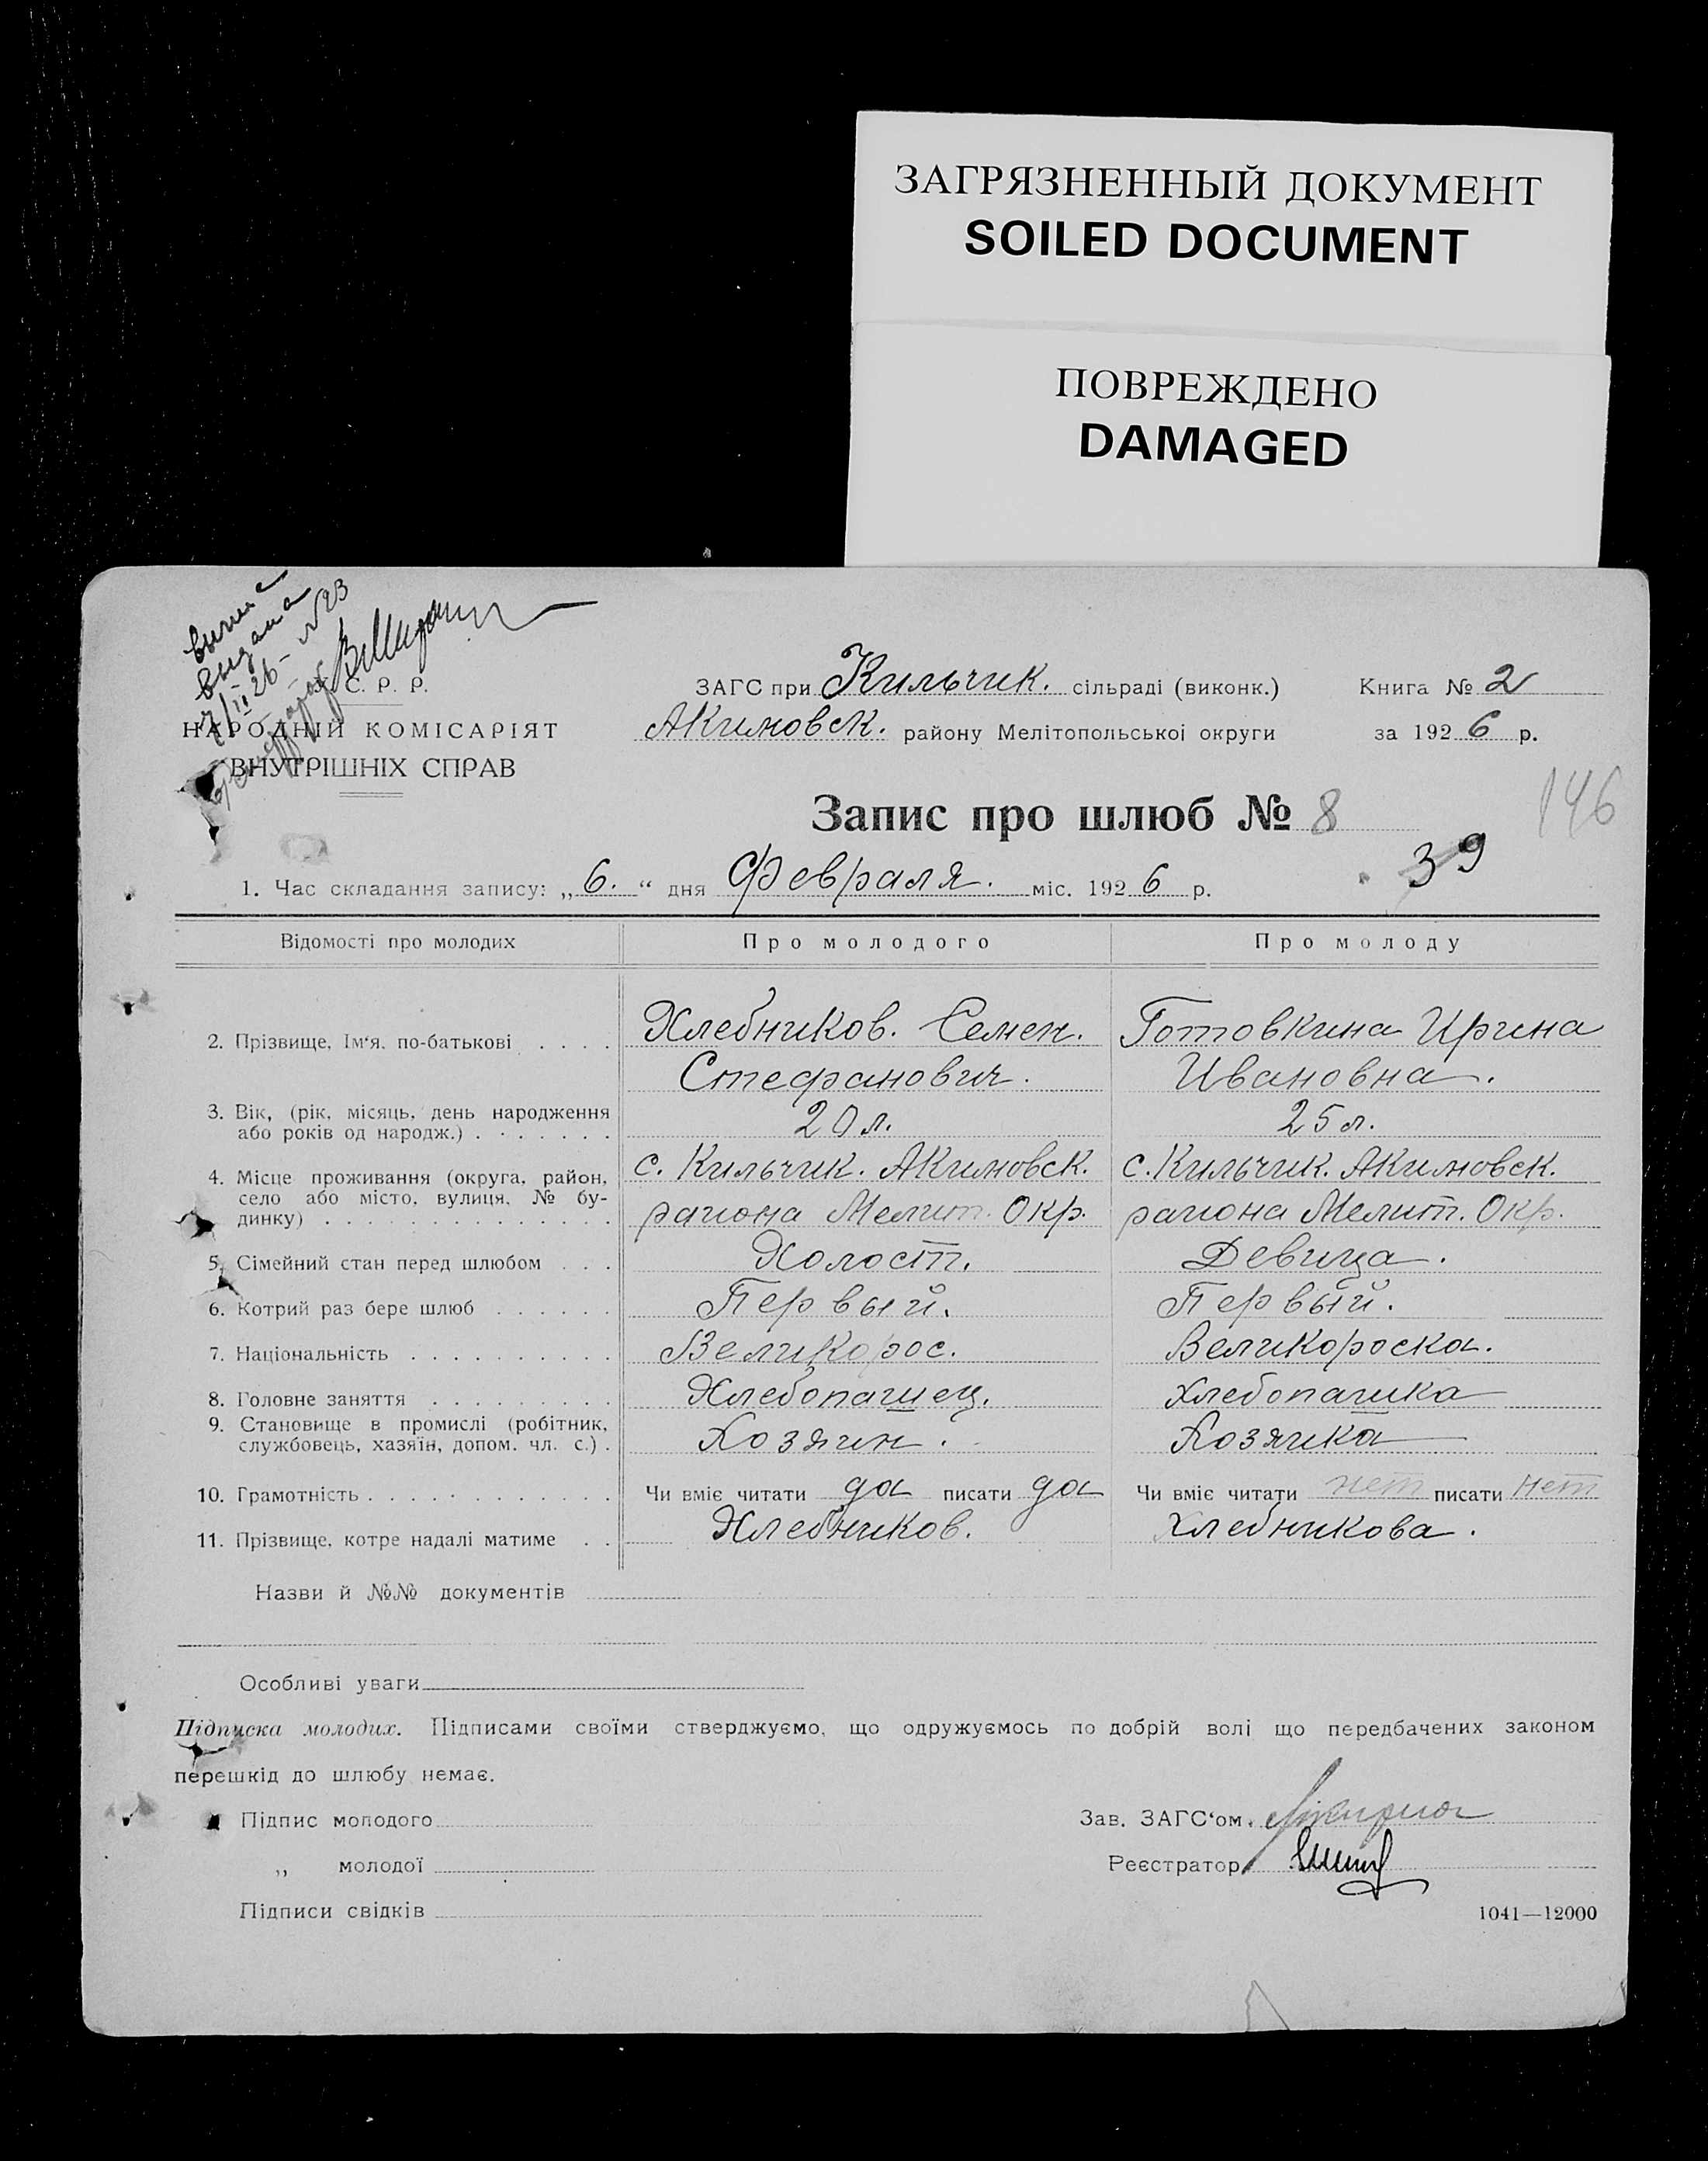 ЗАГРЯЗНЕННЫЙ ДОКУМЕНТ
SOILED DOCUMENT
ПОВРЕЖДЕНО
DAMAGED
выдана
26 - №23
С. Р. Р.
НАРОДНІЙ КОМІСАРІЯТ
ВНУТРІШНІХ СПРАВ
ЗАГС при Кильчик. сільраді (виконк.) Книга № 2
Акимовск. району Мелітопольської округи за 1926 р.
Запис про шлюб № 8
146
39
1. Час складання запису: „6.“ дня Февраля. міс. 1926 р.
Відомості про молодих Про молодого Про молоду
2. Прізвище, Ім‘я, по-батькові . . . . Хлебников. Семен. Готовкина Ирина
Стефанович. Ивановна.
3. Вік, (рік, місяць, день народження
або років од народж.) . . . . . . . 20 л. 25 л.
4. Місце проживання (округа, район, с. Кильчик. Акимовск. с. Кильчик. Акимовск.
село або місто, вулиця, № бу-
динку) . . . . . . . . . . . . . . района Мелит. Окр. района Мелит. Окр.
5. Сімейний стан перед шлюбом . . . Холост. Девица.
6. Котрий раз бере шлюб . . . . . . Первый. Первый.
7. Національність . . . . . . . . . . Великорос. Великороска.
8. Головне заняття . . . . . . . . . Хлебопашец. Хлебопашка
9. Становище в промислі (робітник,
службовець, хазяїн, допом. чл. с.) . Хозяин. Хозяйка
10. Грамотність . . . . . . . . . . . . Чи вміє читати да писати да Чи вміє читати нет писати нет
11. Прізвище, котре надалі матиме . . Хлебников. Хлебникова.
Назви й №№ документів
Особливі уваги
Підписка молодих. Підписами своїми стверджуємо, що одружуємось по добрій волі що передбачених законом
перешкід до шлюбу немає.
Підпис молодого
Зав. ЗАГС‘ом.
„ молодої
Реєстратор
Підписи свідків
1041—12000